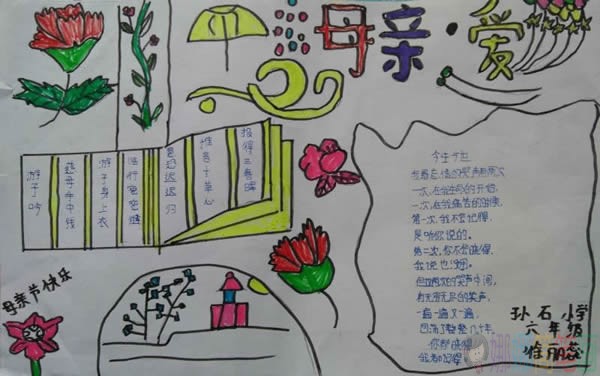 母亲·爱
游子吟
慈母手中线
游子身上衣
临行密密缝
意恐迟迟归
谁言寸草心
报得三春晖
母亲节快乐
今生今世
忘情的哭声有两次
一次,在我生命的开始,
一次,在我痛苦的时候,
第一次,我不会记得,
是听你说的。
第二次,你不会晓得,
我说也没用。
但两次的哭声中间,
有无穷无尽的笑声,
一遍一遍又一遍,
回荡了整整几十年,
你都晓得
我都记得
孙石小学
六年级